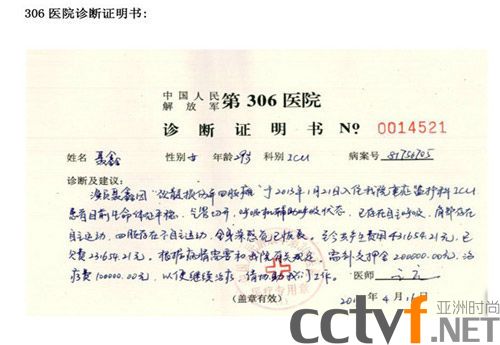 306 医院诊断证明书:
中国人民
解放军 第 306 医院
诊 断 证 明 书 № 0014521
姓名 聂鑫 性别 女 年龄 29岁 科别 ICU 病案号
诊断及建议:
于2013年1月21日入住我院重症监护科ICU
患者目前生命体征平稳，气管切开，呼吸机辅助呼吸状态，已存在自主呼吸，
自主运动，四肢存在不自主运动，至今共产生费用431654.21元，已
欠费231654.21元。根据病情需要和我院有关规定，需补交押金200000.00元，治
疗费100000.00元，以便继续治疗，请协助我们工作。
医师
医疗专用章
(盖章有效) 4 月 日
cctvf 亚洲时尚
.NET